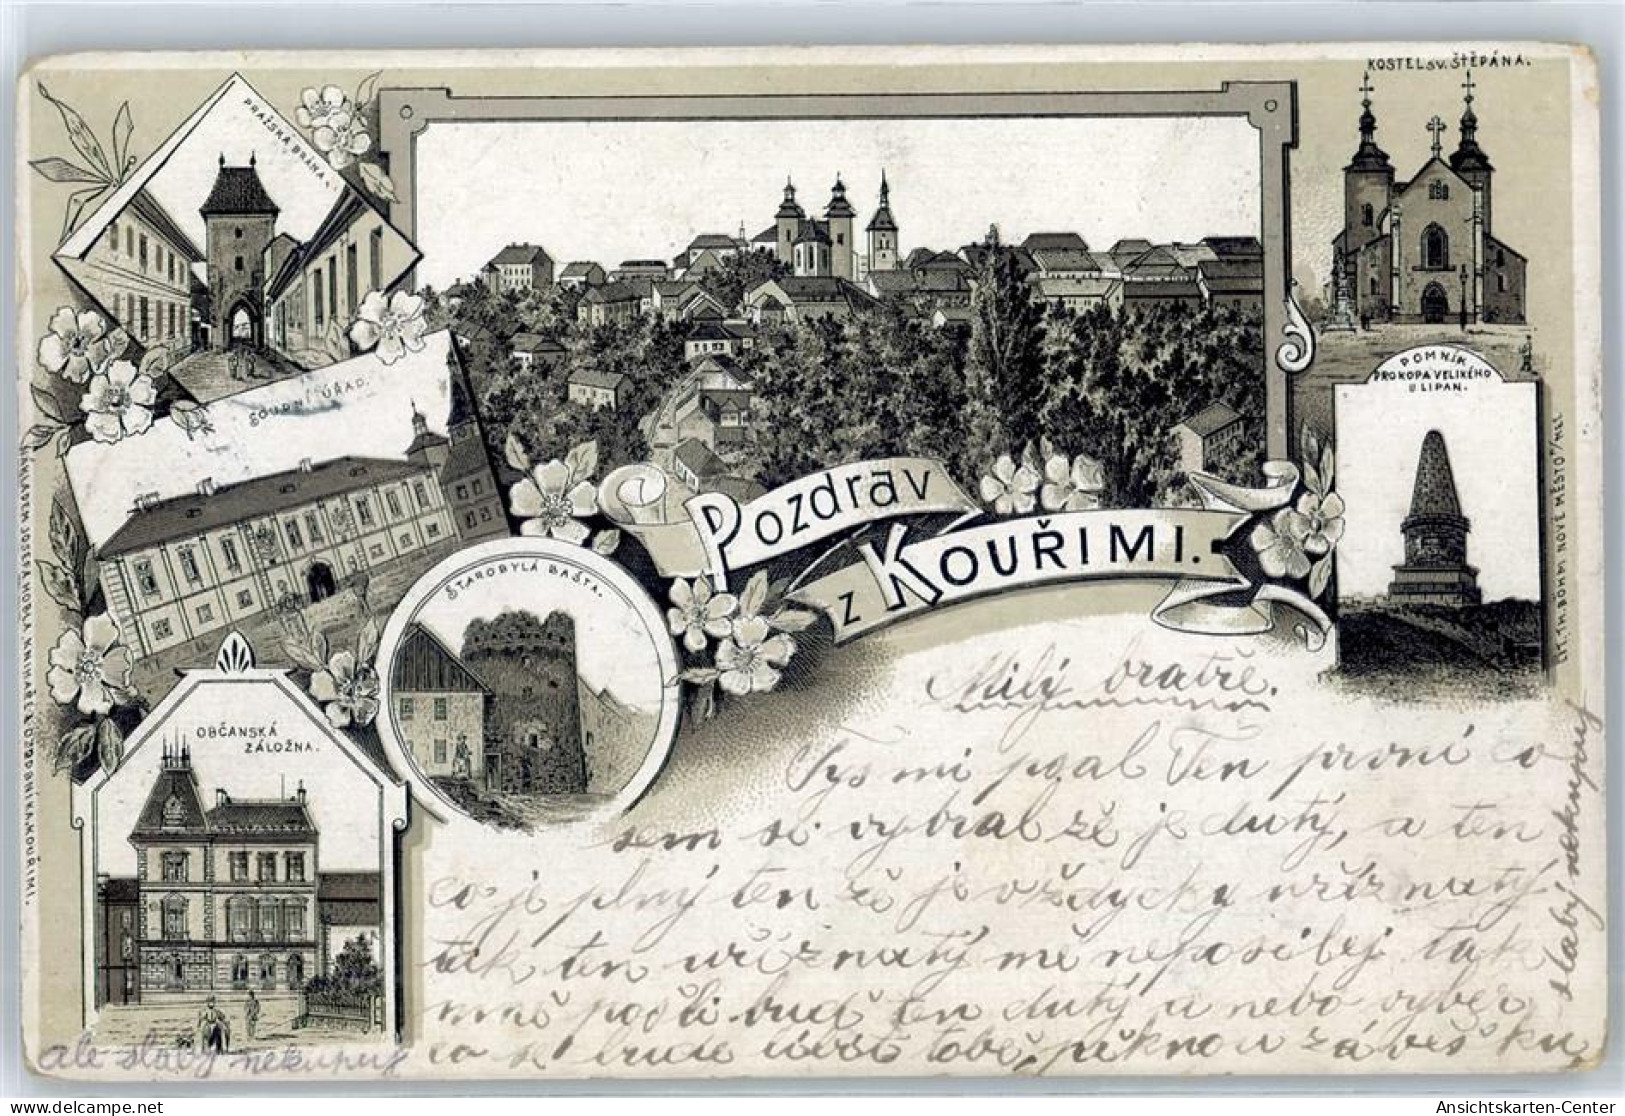 PRAŽSKÁ BRÁNA.
KOSTEL SV. ŠTĚPÁNA.
SOUDNÍ ÚŘAD.
POMNÍK
PROKOPA VELIKÉHO
U LIPAN.
Pozdrav
z KOUŘIMI.
STAROBYLÁ BAŠTA.
OBČANSKÁ
ZÁLOŽNA.
NÁKLADEM JOSEFA NOBLA KNIHAŘE A OZDOBNÍKA KOUŘIMI.
LIT. TH. BÖHM NOVÉ MĚSTO N/MET
Milý bratře.
Tys mi psal Ten první co
sem si vybral že je dutý, a ten
co je plný ten že je vždycky uříznutý
tak ten uříznutý mě neposílej tak
mně pošli buď ten dutý a nebo vyber
co se bude líbit tobě, pěknou záveš ku,
ale slabý nekupuj
slabý nekupuj
AnsichtskartenCenter on delcampe.net
Ansichtskarten-Center